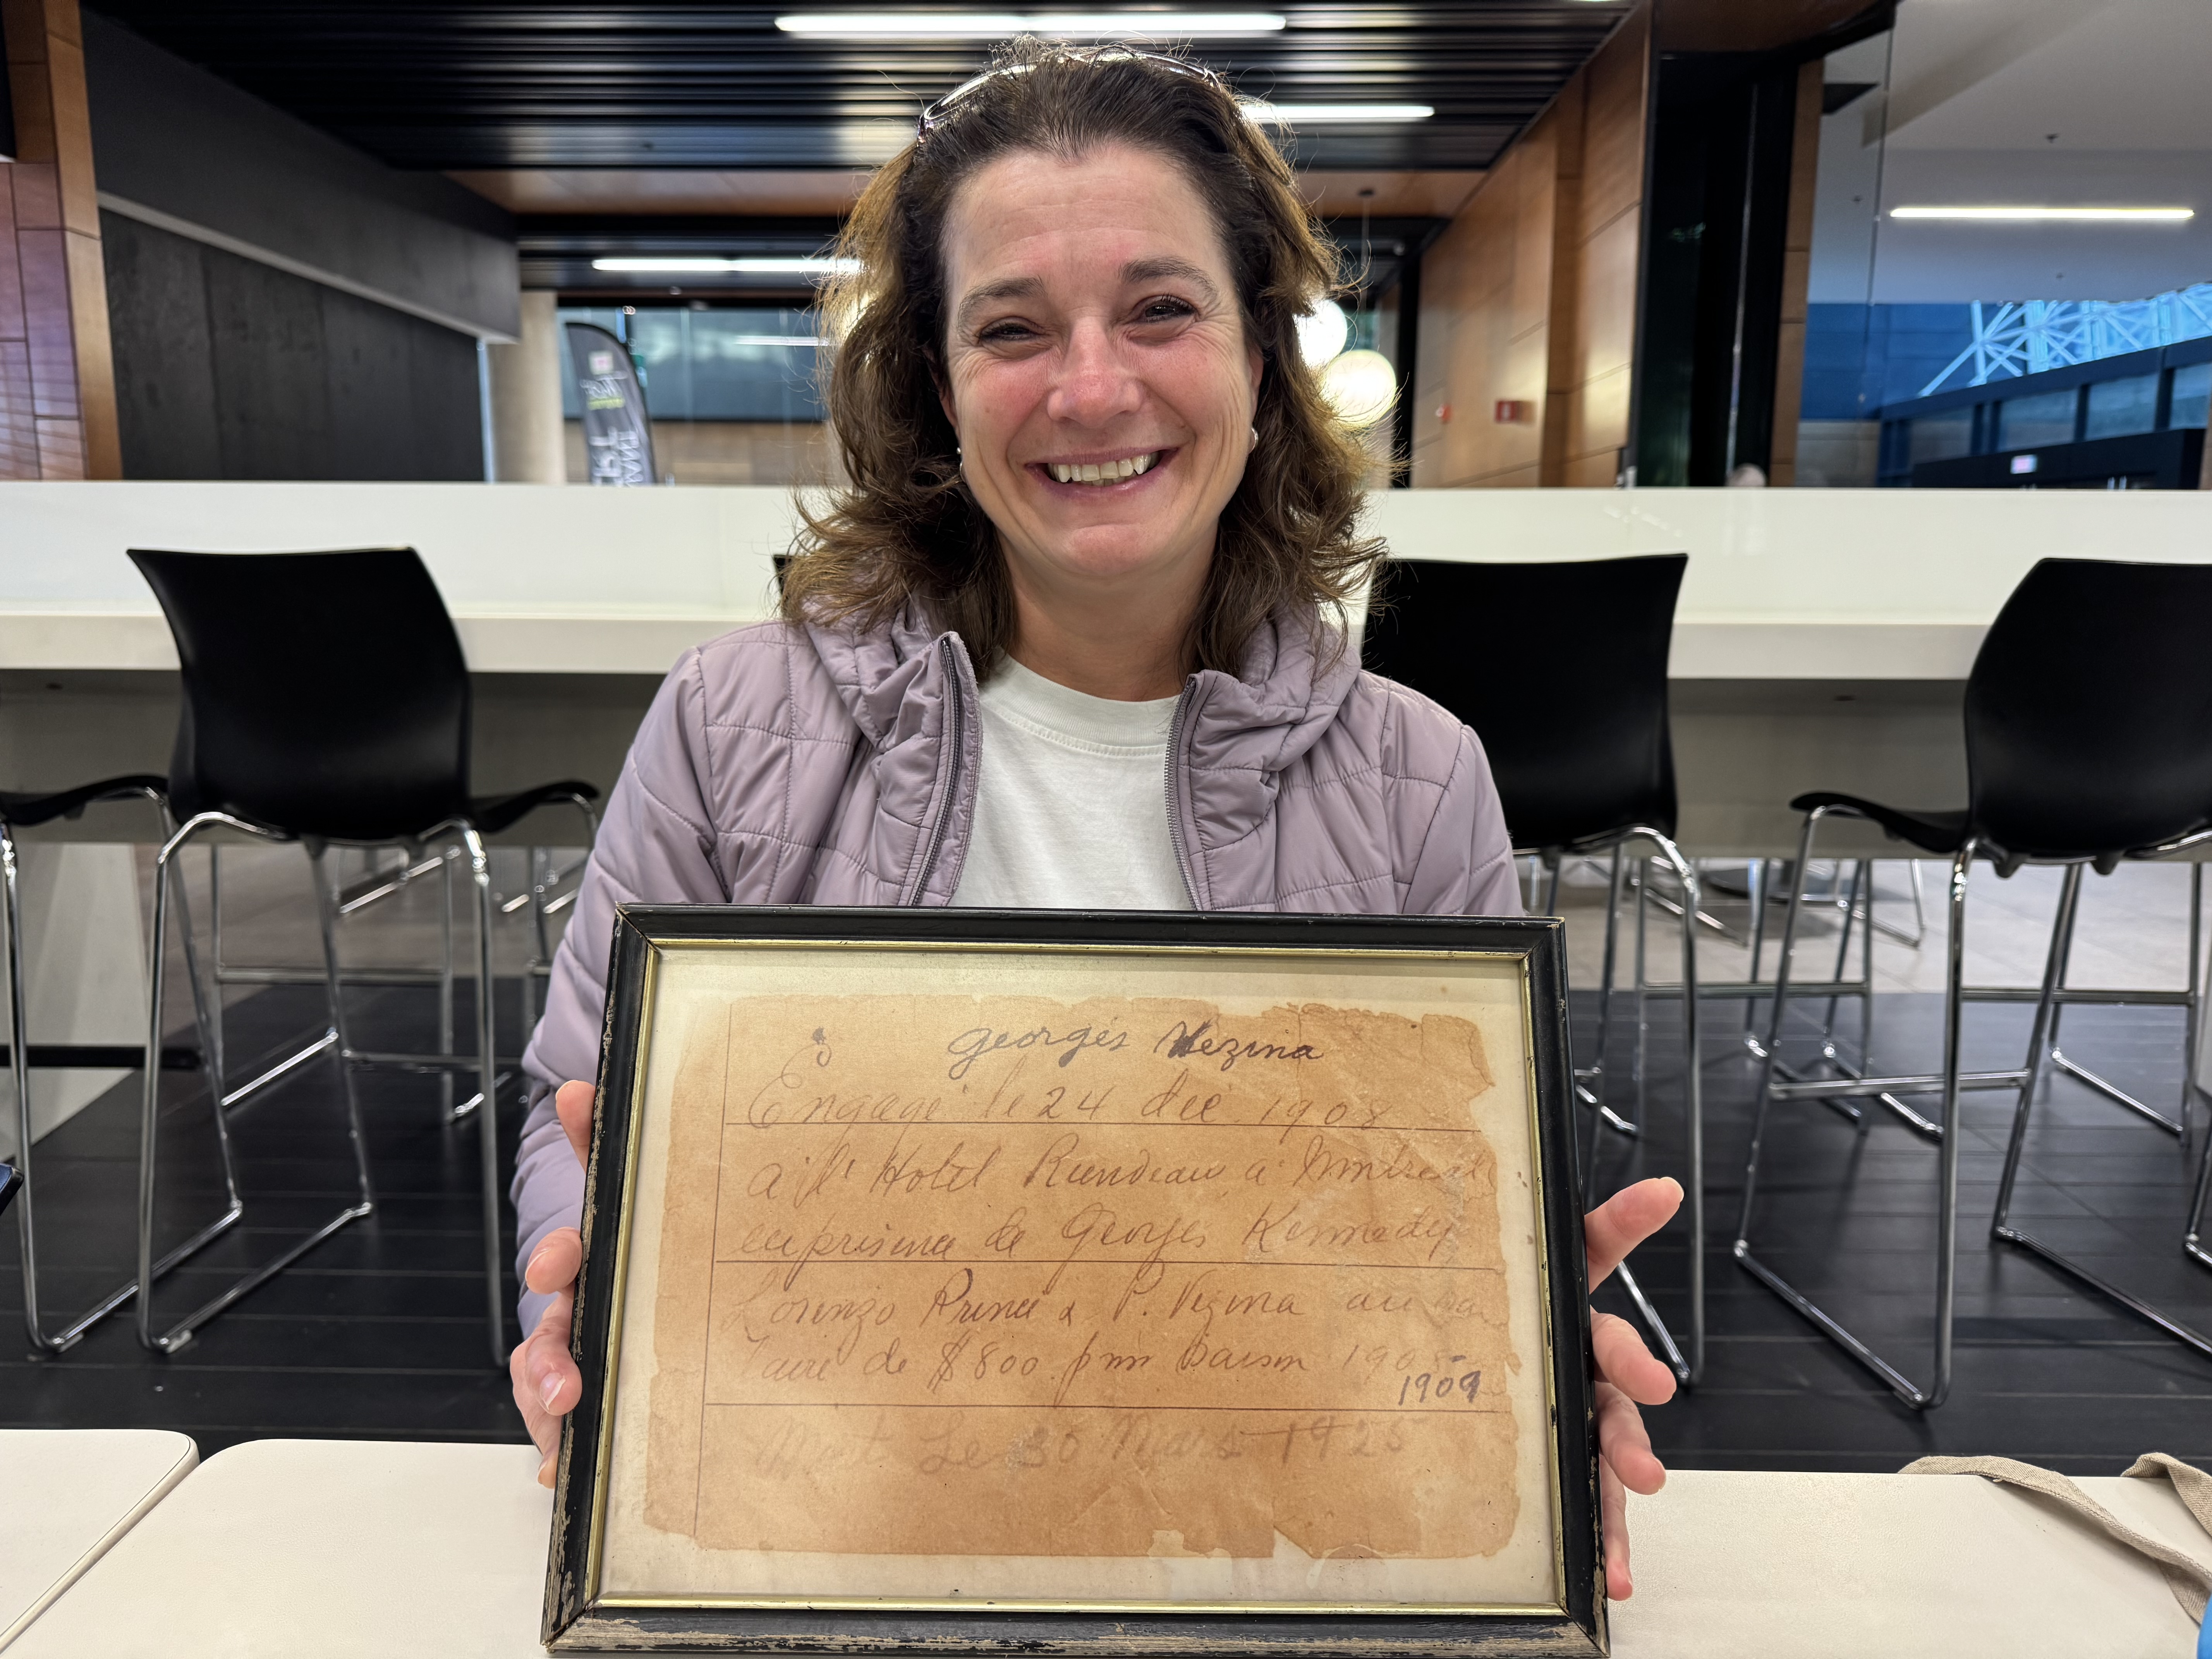 Georges Vezina
Engagé le 24 déc 1908
a l' Hotel Rundeau a Montreal
en présence de Georges Kennedy
Lorenzo Prince & P. Vezina au sa
laire de $800 pour saison 1908
1909
Mort Le 30 Mars 1925